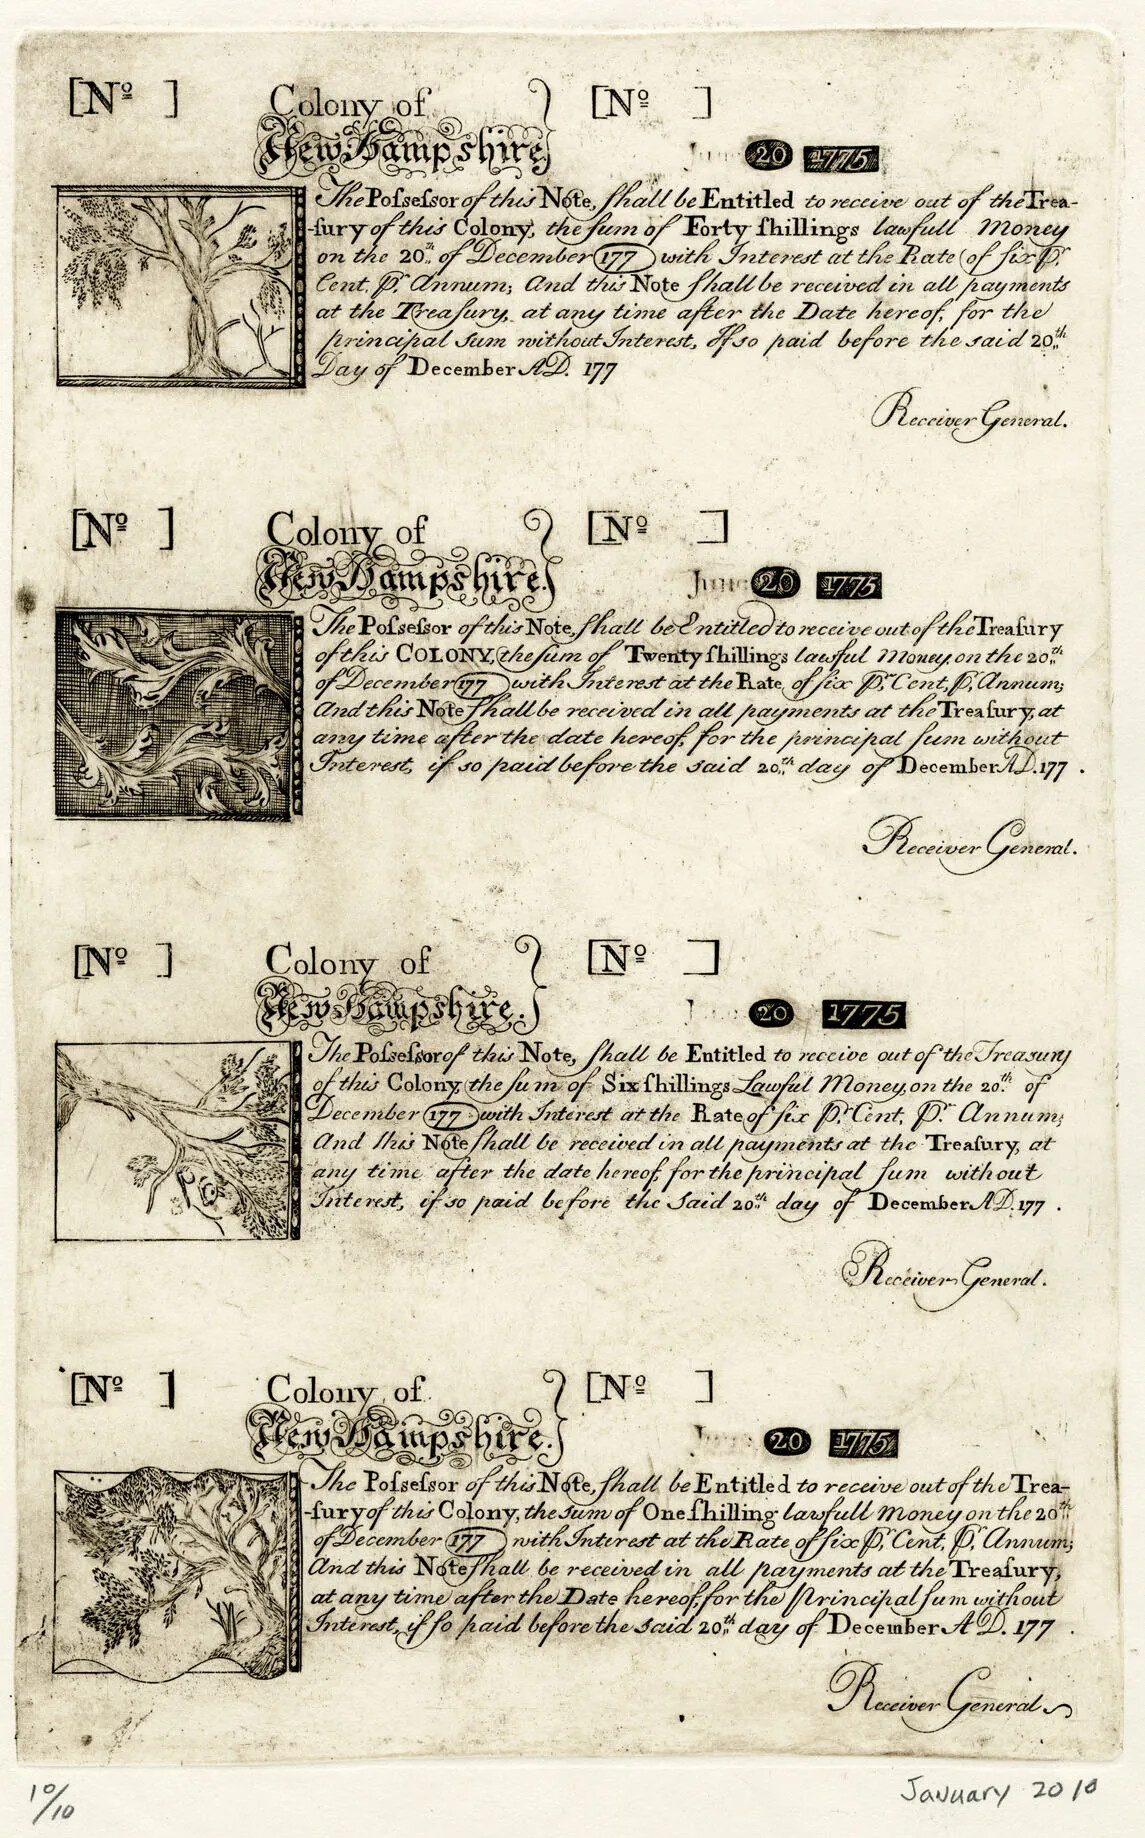 [Nº ] Colony of [Nº ]
New Hampshire. 20 1775
The Poſseſsor of this Note, ſhall be Entitled to receive out of the Trea-
-ſury of this Colony, the ſum of Forty ſhillings lawfull Money
on the 20.th of December 177 with Interest at the Rate of ſix Pr.
Cent, Pr. Annum; And this Note ſhall be received in all payments
at the Treaſury, at any time after the Date hereof, for the
principal Sum without Interest, If so paid before the said 20.th
Day of December AD. 177
Receiver General.
[Nº ] Colony of [Nº ]
New Hampshire. June 20 1775
The Poſseſsor of this Note, ſhall be Entitled to receive out of the Treaſury
of this COLONY, the ſum of Twenty ſhillings lawful Money, on the 20.th
of December 177 with Interest at the Rate of ſix Pr. Cent, Pr. Annum;
And this Note ſhall be received in all payments at the Treaſury, at
any time after the date hereof, for the principal ſum without
Interest, if so paid before the said 20.th day of December A.D. 177 .
Receiver General.
[Nº ] Colony of [Nº ]
New Hampshire. 20 1775
The Poſseſsor of this Note, ſhall be Entitled to receive out of the Treasury
of this Colony, the ſum of Six ſhillings Lawful Money, on the 20.th of
December 177 with Interest at the Rate of ſix Pr. Cent, Pr. Annum;
And this Note ſhall be received in all payments at the Treaſury, at
any time after the date hereof, for the principal ſum without
Interest, if so paid before the Said 20.th day of December A.D. 177 .
Receiver General.
[Nº ] Colony of [Nº ]
New Hampshire. 20 1775
The Poſseſsor of this Note, ſhall be Entitled to receive out of the Trea-
-ſury of this Colony, the sum of One ſhilling lawfull Money on the 20.th
of December 177 with Interest at the Rate of ſix Pr. Cent, Pr. Annum;
And this Note ſhall be received in all payments at the Treaſury,
at any time after the Date hereof, for the Principal ſum without
Interest, if ſo paid before the Said 20.th day of December A D. 177 .
Receiver General
10/10 January 2010